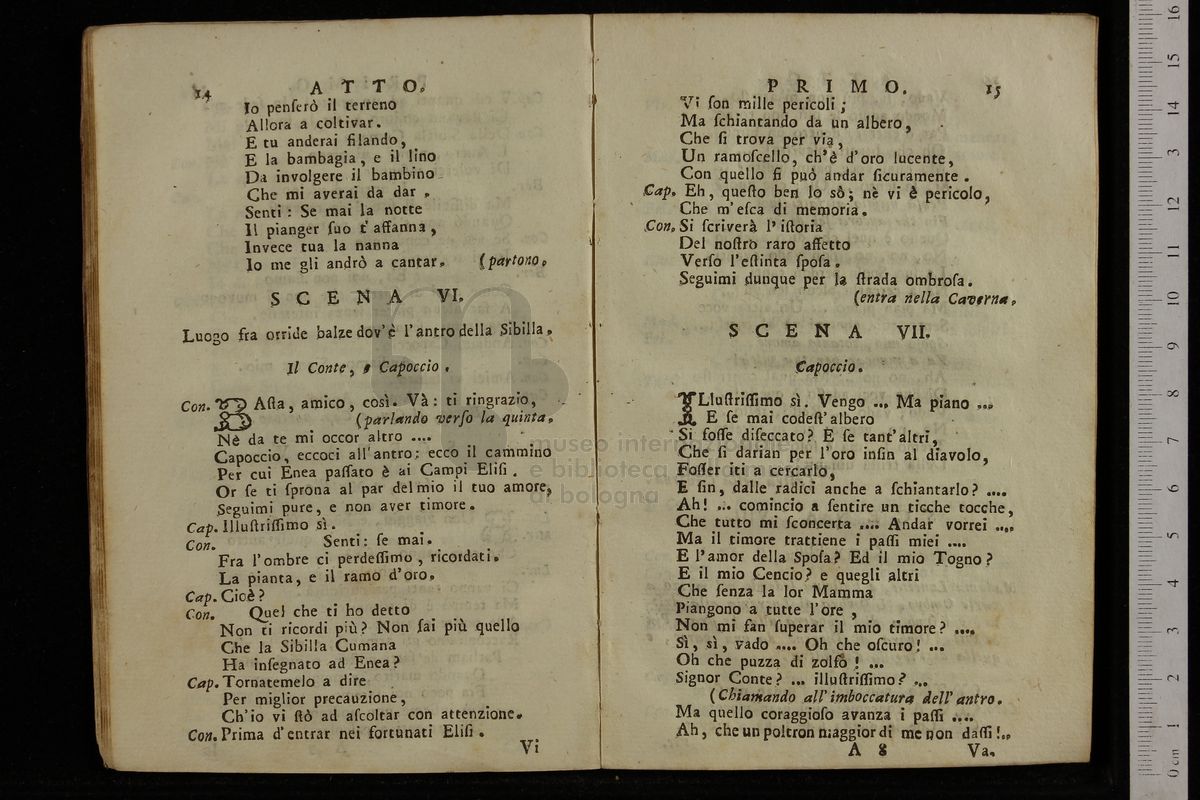 14 ATTO.
Io penſerò il terreno
Allora a coltivar.
E tu anderai filando,
E la bambagia, e il lino
Da involgere il bambino
Che mi averai da dar.
Senti: Se mai la notte
Il pianger ſuo t'affanna,
Invece tua la nanna
Io me gli andrò a cantar. (partono.
SCENA VI.
Luogo fra orride balze dov'è l'antro della Sibilla.
Il Conte, e Capoccio.
Con. BAſta, amico, così. Và: ti ringrazio,
(parlando verſo la quinta.
Nè da te mi occor altro ....
Capoccio, eccoci all'antro; ecco il cammino
Per cui Enea paſſato è ai Campi Eliſi.
Or ſe ti ſprona al par del mio il tuo amore,
Seguimi pure, e non aver timore.
Cap. Illuſtriſſimo sì.
Con. Senti: ſe mai.
Fra l'ombre ci perdeſſimo, ricordati.
La pianta, e il ramo d'oro.
Cap. Cioè?
Con. Quel che ti ho detto
Non ti ricordi più? Non ſai più quello
Che la Sibilla Cumana
Ha inſegnato ad Enea?
Cap. Tornatemelo a dire
Per miglior precauzione,
Ch'io vi ſtò ad aſcoltar con attenzione.
Con. Prima d'entrar nei fortunati Eliſi.
Vi
PRIMO. 15
Vi ſon mille pericoli;
Ma ſchiantando da un albero,
Che ſi trova per via,
Un ramoſcello, ch'è d'oro lucente,
Con quello ſi può andar ſicuramente.
Cap. Eh, queſto ben lo sò; nè vi è pericolo,
Che m'eſca di memoria.
Con. Si ſcriverà l'iſtoria
Del noſtro raro affetto
Verſo l'eſtinta ſpoſa.
Seguimi dunque per la ſtrada ombroſa.
(entra nella Caverna.
SCENA VII.
Capoccio.
ILluſtriſſimo sì. Vengo ... Ma piano ...
E ſe mai codeſt'albero
Si foſſe diſeccato? E ſe tant'altri,
Che ſi darian per l'oro inſin al diavolo,
Foſſer iti a cercarlo,
E fin, dalle radici anche a ſchiantarlo? ....
Ah! ... comincio a ſentire un ticche tocche,
Che tutto mi ſconcerta .... Andar vorrei ....
Ma il timore trattiene i paſſi miei ....
E l'amor della Spoſa? Ed il mio Togno?
E il mio Cencio? e quegli altri
Che ſenza la lor Mamma
Piangono a tutte l'ore,
Non mi fan ſuperar il mio timore? ....
Sì, sì, vado .... Oh che oſcuro! ...
Oh che puzza di zolfo! ...
Signor Conte? ... illuſtriſſimo? ...
(Chiamando all'imboccatura dell'antro.
Ma quello coraggioſo avanza i paſſi ....
Ah, che un poltron maggior di me non daſſi!..
A 8 Va.
museo internazionale
e biblioteca della musica
di bologna